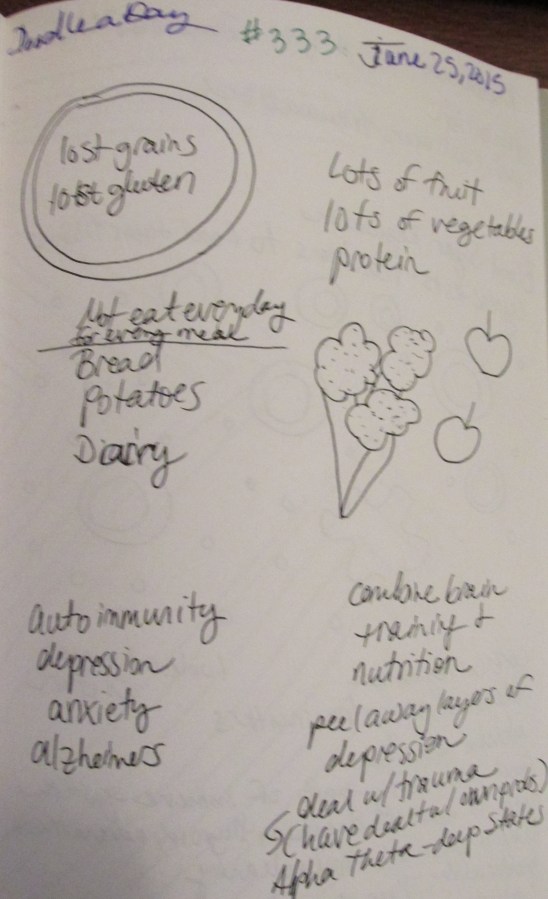 Doodle a Day #333 June 25, 2015
lost grains
lost gluten
Lots of fruit
lots of vegetables
protein
Not eat everyday
for every meal
Bread
Potatoes
Diairy
autoimmunity
depression
anxiety
alzheimers
combine brain
training +
nutrition
peel away layers of
depression
deal w/ trauma
(have dealt w/
Alpha Theta-deep states